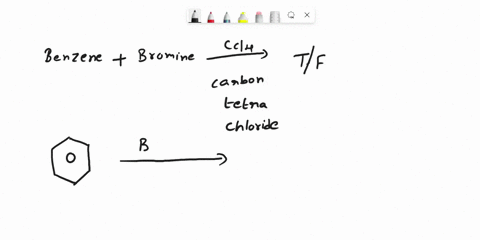 Benzene + Bromine CCl4 T/F
carbon
tetra
chloride
B